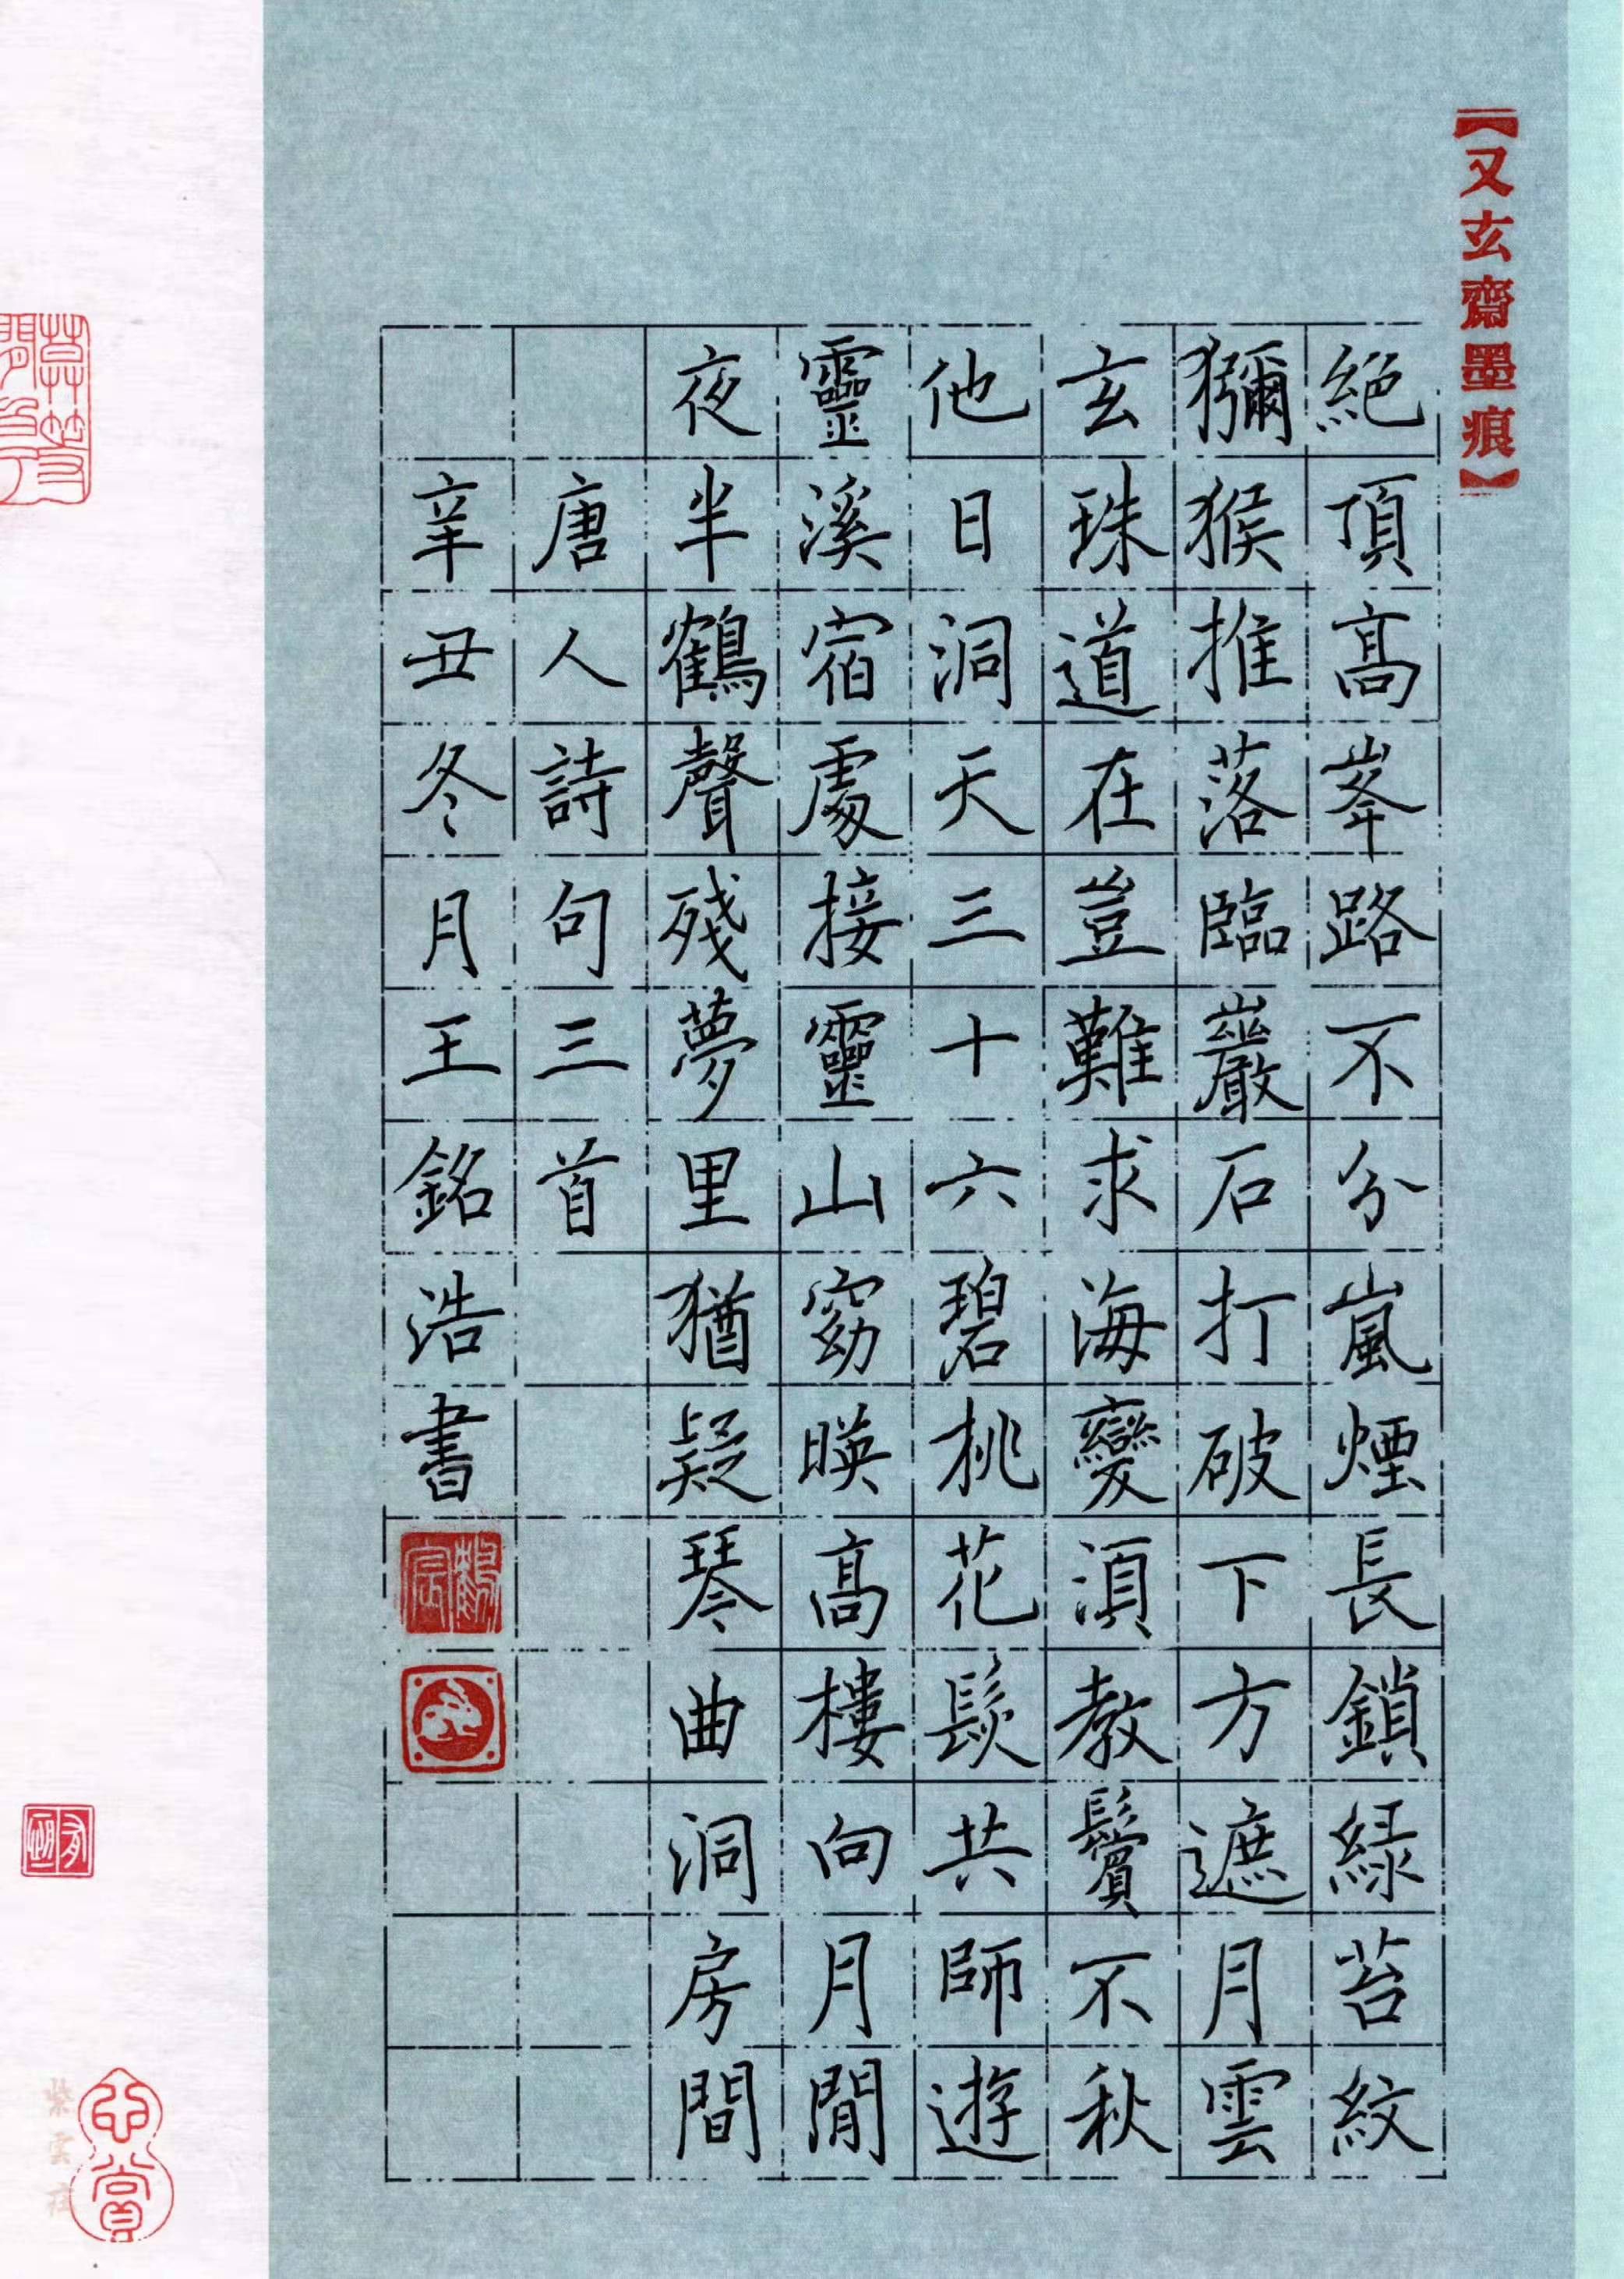 【又玄齋墨痕】
絶頂高峯路不分嵐煙長鎖緑苔紋
獼猴推落臨巖石打破下方遮月雲
玄珠道在豈難求海變須教鬢不秋
他日洞天三十六碧桃花髮共師遊
靈溪宿處接靈山窈暎高樓向月閒
夜半鶴聲殘夢里猶疑琴曲洞房間
唐人詩句三首
辛丑冬月王銘浩書
心賞